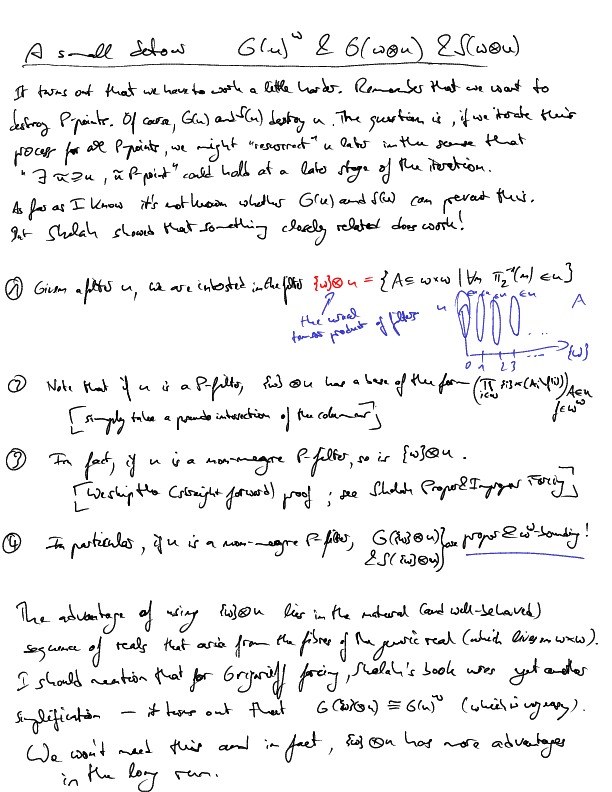 A small detour G(u)^ω & G(ω⊗u) & S(ω⊗u)
It turns out that we have to work a little harder. Remember that we want to
destroy P-points. Of course, G(u) and S(u) destroy u. The question is, if we iterate this
process for all P-points, we might "resurrect" u later in the sense that
"∃ ũ ⊇ u, ũ P-point" could hold at a later stage of the iteration.
As far as I know it's not known whether G(u) and S(u) can prevent this.
But Shelah showed that something closely related does work!
① Given a filter u, we are interested in the filter {ω}⊗u = {A ⊆ ω×ω | ∀n π₂⁻¹(n) ∈ u}
the usual
tensor product of filters
u ∈u ∈u ∈u A
0 1 2 3 ... {ω}
② Note that if u is a P-filter, {ω}⊗u has a base of the form
[simply take a pseudo intersection of the columns]
③ In fact, if u is a non-meagre P-filter, so is {ω}⊗u.
[We skip the (straight forward) proof; see Shelah Proper & Improper Forcing]
④ In particular, if u is a non-meagre P-filter, G({ω}⊗u) & S({ω}⊗u) are proper & ω^ω-bounding!
The advantage of using {ω}⊗u lies in the natural (and well-behaved)
sequence of reals that arise from the fibres of the generic real (which lives on ω×ω).
I should mention that for Grigorieff forcing, Shelah's book uses yet another
simplification — it turns out that G({ω}⊗u) ≅ G(u)^ω (which is very easy).
We won't need this and in fact, {ω}⊗u has more advantages
in the long run.